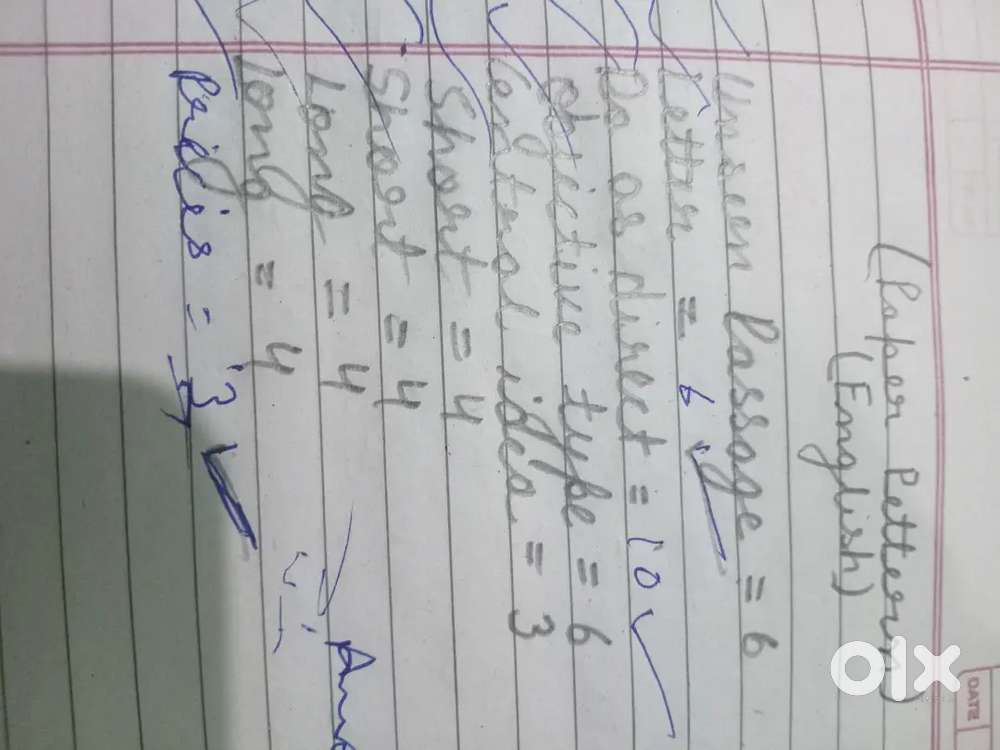 DATE
(Paper Pettern)
(English)
Unseen Passage = 6
Letter = 6
Do as direct = 10
objective type = 6
Central idea = 3
Short = 4
Short = 4
Long = 4
Long = 4
= 3
olx